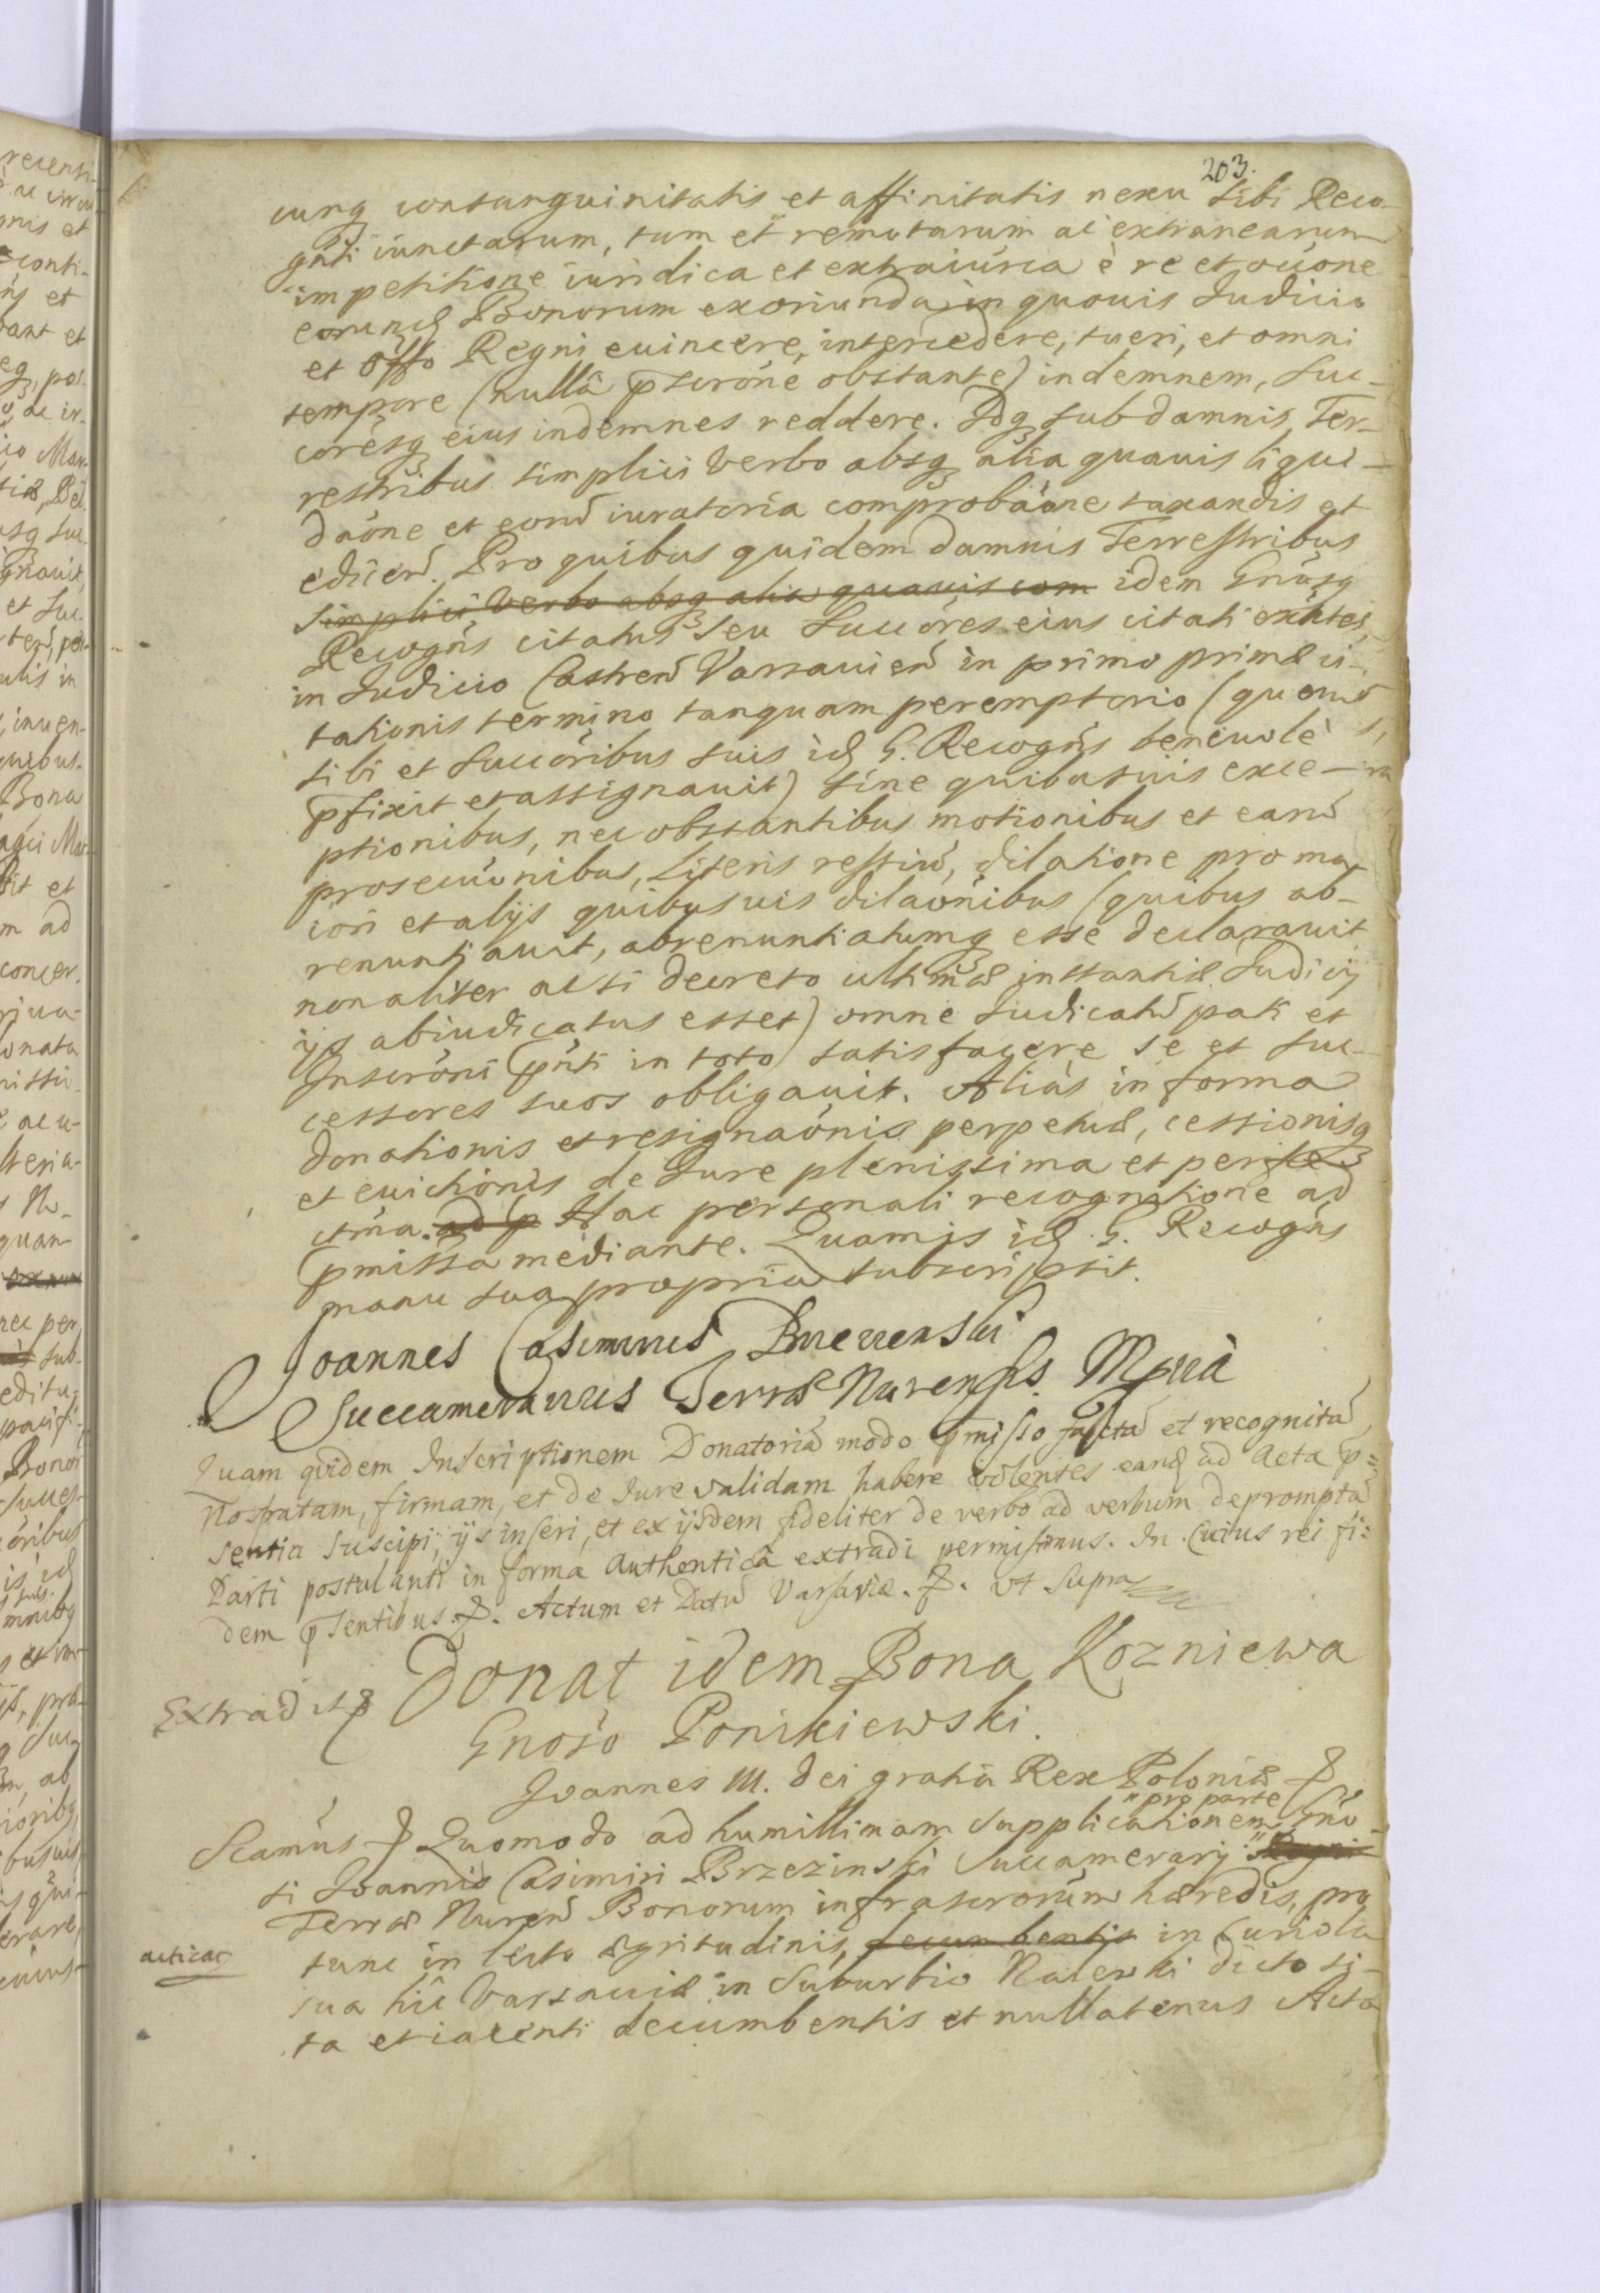 203.
cunq consanguinitatis et affinitatis nexu sibi Reco-
gñti iunctarum, tum et remotarum ac extranearum
impetitione iuridica et extraiur̃ca è re et occ̃one
eorund Bonorum exoriunda in quouis Iudicio
et Offo Regni euincere, intercedere, tueri, et omni
tempore (nullâ p̃scr̃one obstante) indemnem, suc-
cor̃esq eius indemnes reddere. Idq sub damnis Ter-
restribus simplici verbo absq alia quauis liqui-
da͠one et eorũ iuratoria comproba͠one taxandis et
ediceñ. Pro quibus quidem damnis Terrestribus
simplici verbo absq alia quauis com idem Gñusq
Recogñs citatus seu Succor̃es eius citati exñtes,
in Iudicio Castreñ Varsauieñ in primo primæ ci-
tationis termino tanquam peremptorio (quem
sibi et Succoribus suis id G. Recogñs beneuolè
p̃fixit et assignauit) sine quibusuis exce-
ptionibus, nec obstantibus motionibus et earũ
prosecu͠onibus, Literis restiũ, dilatione pro ma-
iori et alijs quibusuis dila͠onibus (quibus ab-
renuntiauit, abrenuntiatumq esse declarauit
non aliter ac si decreto ultimæ instantiæ Iudicij
ijs abiudicatus esset) omne Iudicatũ pati et
Inscr̃oni p̃nti in toto satisfacere se et suc-
cessores suos obligauit. Aliàs in forma
donationis et resigna͠onis perpetuæ, cessionisq
et euictionis de Iure plenissima et perfe-
ctma. ad p Hac personali recognitione ad
p̃missa mediante. Quam is id G. Recogñs
manu sua propria subscripsit.
Joannes Casimirus Brzezinski
Succamerarius Terræ Nurensis Mpria
Quam quidem Inscriptionem Donatoriã modo p̃misso factã et recognitã
Nos ratam, firmam, et de Iure validam habere volentes eand ad Acta p̃=
sentia suscipi, ijs inseri, et ex ijsdem fideliter de verbo ad verbum depromptã
Parti postulanti in forma Authenticâ extradi permisimus. In Cuius rei fi=
dem p̃sentibus. Actum et Datũ Varsaviæ. ut supra
Extradit
Donat idem Bona Kozniewa
Gnoso Ponikiewski.
Ioannes III. Dei gratia Rex Poloniæ
"pro parte
Scamus Quomodo ad humillimam supplicationem Gño-
si Ioannis Casimiri Brzezinski Succamerarij "Regni
Terræ Nureñ Bonorum infrascr̃orum hæredis, pro
acticat
tunc in lecto ægritudinis, decumbentis in Curiola
sua hic Varsauiæ in Suburbio Nalewki dicto si-
ta et iacenti decumbentis et nullatenus Acta